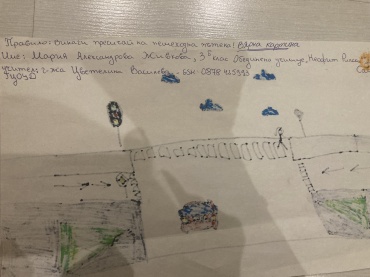 Правило: Винаги пресичай на пешеходна пътека! Вярна картина
Име: Мария Александрова Живкова, 3 клас Обединено училище, Неофит Рилски
учител: г-жа Цветелина Василева - GSM 0878